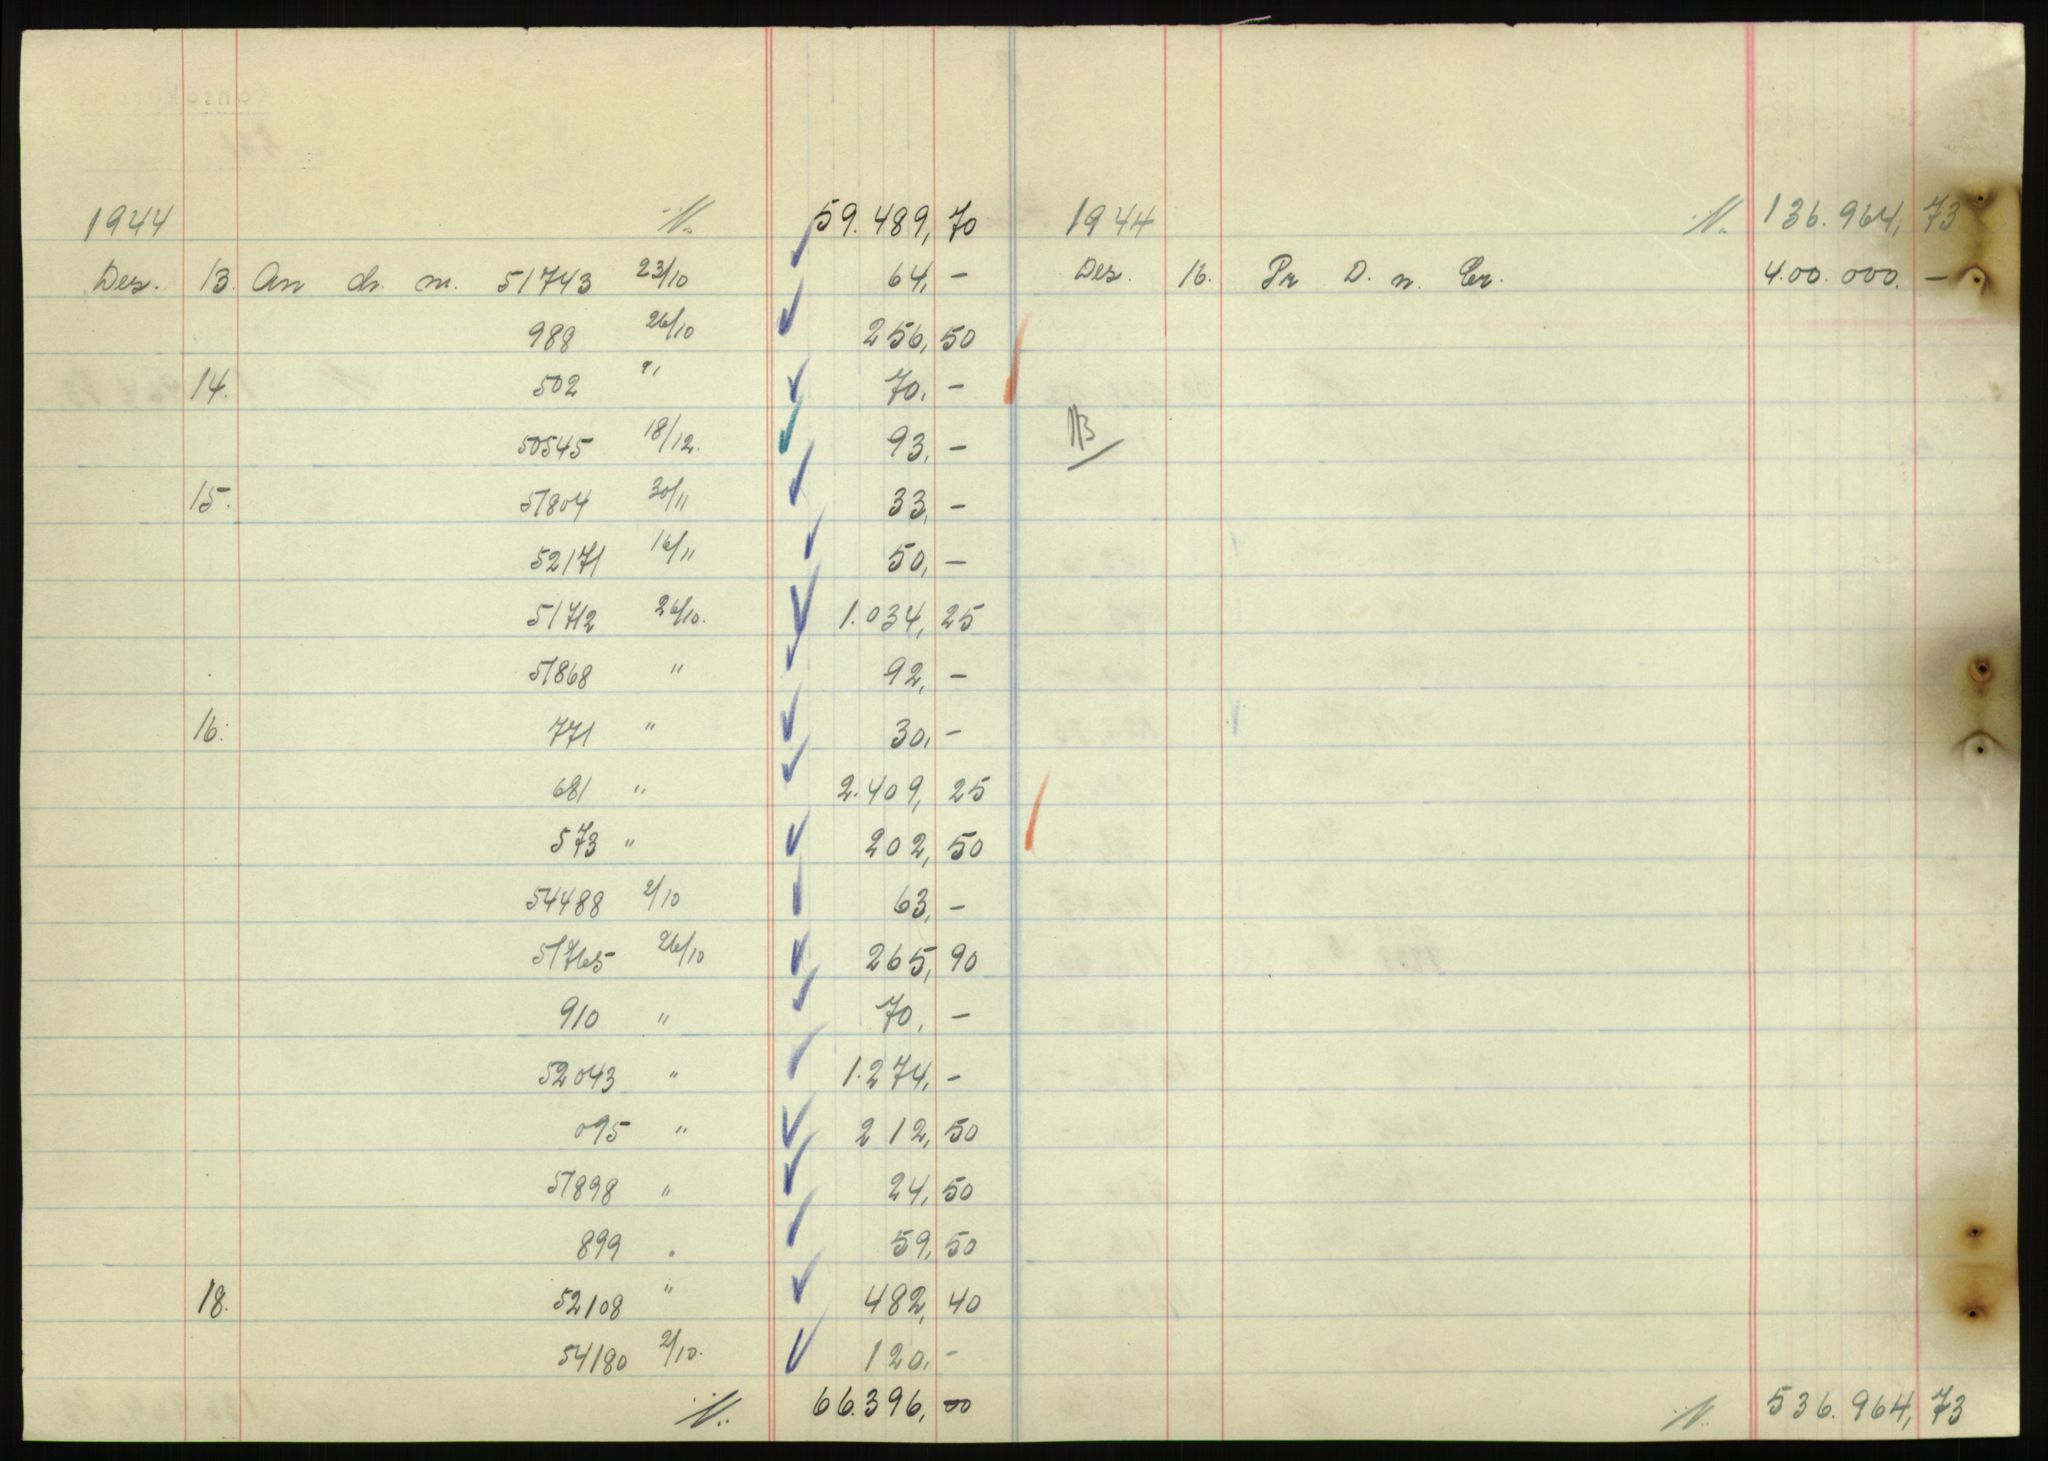 1944 ·/. 59.489,70
Des. 13. An ch. nr. 51743 23/10 64,-
988 26/10 256,50
14. 502 " 70,-
50545 18/12. 93,-
15. 51804 30/11 33,-
52171 16/11 50,-
51712 26/10. 1.034,25
51868 " 92,-
16. 771 " 30,-
681 " 2.409,25
573 " 202,50
54488 2/10 63,-
51765 26/10 265,90
910 " 70,-
52043 " 1.274,-
095 " 212,50
51898 " 24,50
899 " 59,50
18. 52108 " 482,40
54180 2/10. 120,-
·/. 66.396,00
1944 ·/. 136.964,73
Des. 16. Pr D. n. Cr. 400.000.-
NB
·/. 536.964,73